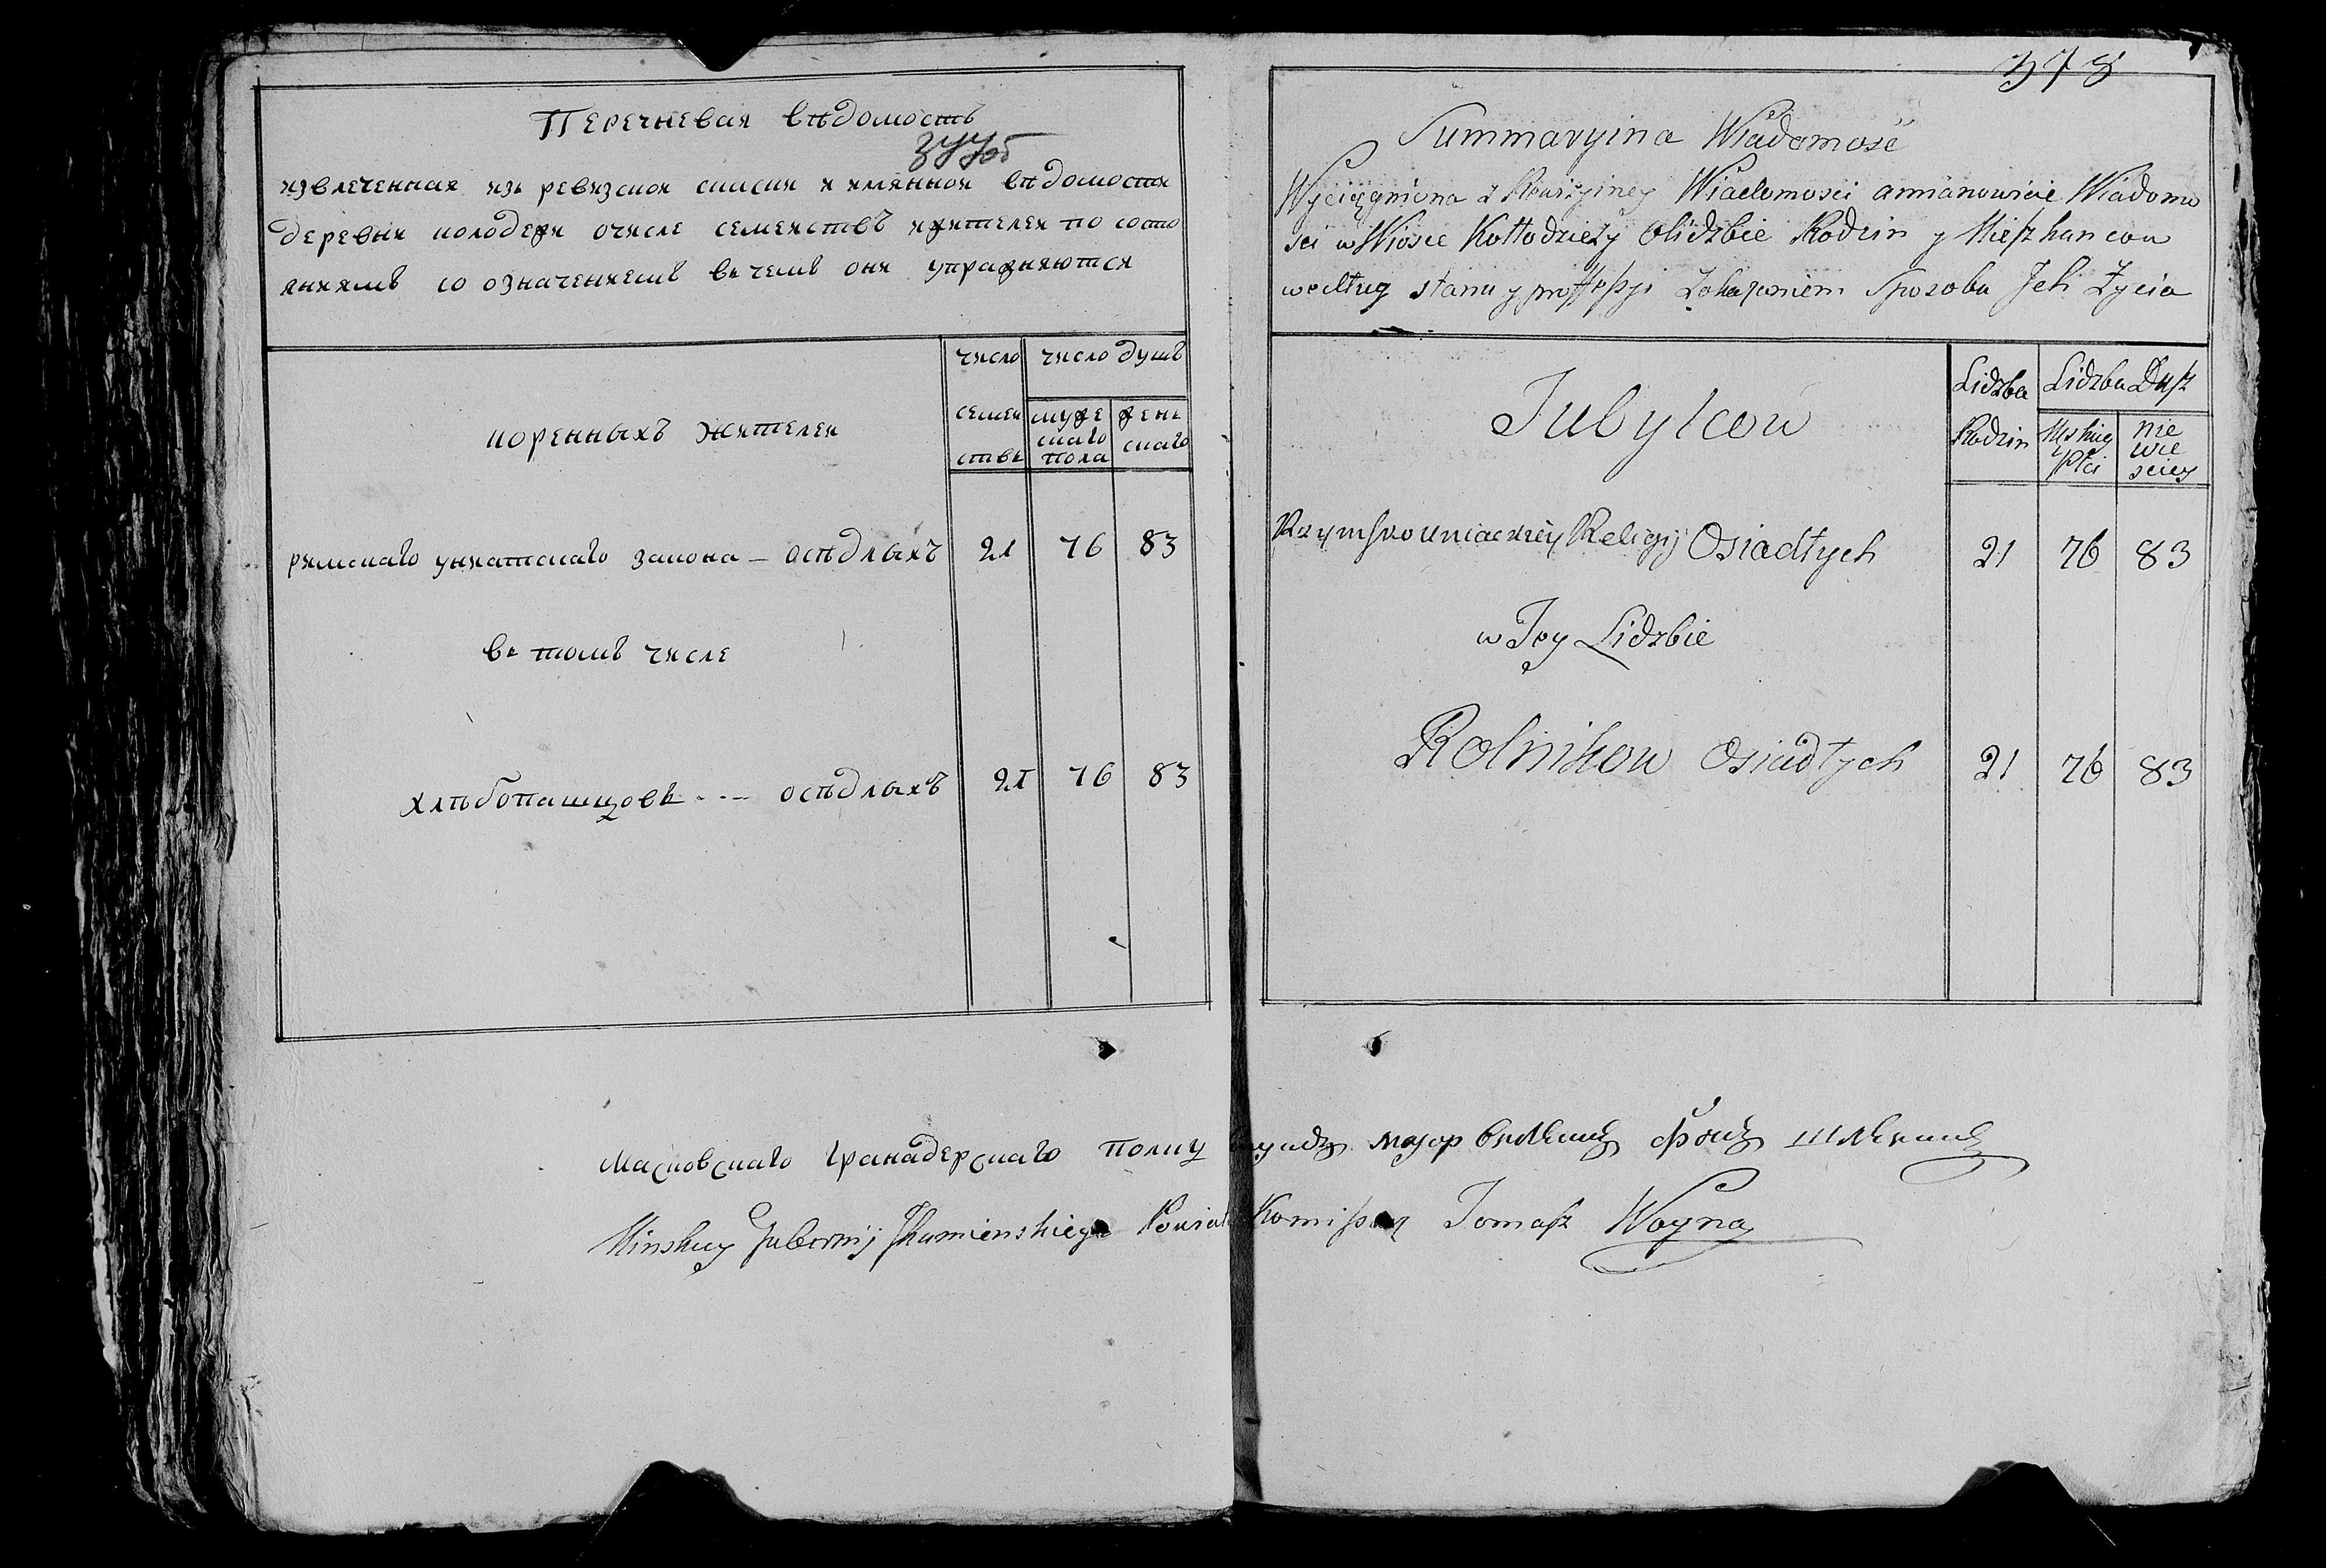 Перечневая вѣдомость
извлеченная изъ ревизской списки и имянной вѣдомости
деревни колодежи очисле семействъ и жителей по состо
яниямъ со означениемъ въ чемъ они упражняются
число число душъ
коренныхъ жителей
семей ствъ
муже скаго пола
жень скаго
римскаго униатскаго закона — осѣдлыхъ 21 76 83
въ томъ числе
хлѣбопашцовъ --- осѣдлыхъ 21 76 83
378
Summaryina Wiadomość
Wyciągniona z Rewizyiney Wiadomosci amianowicie Wiadomo
sci w Wiosce Kołłodzieży Olidzbie Rodzin y Mieszkancow
według stanu y proffessyi Zokazaniem Sposobu Jch Życia
Lidzba Lidzba Dusz
Tubylcow
Rodzin
Męskiey Płci
nie wie sciey
Rzymsko uniackiey Religij Osiadłych 21 76 83
w Tey Lidzbie
Rolnikow Osiadłych 21 76 83
Масковскаго гранадерскаго полку маиор фонъ
Minskiey Gubernij Jhumienskiego Powiat Komissarz Tomasz Woyna